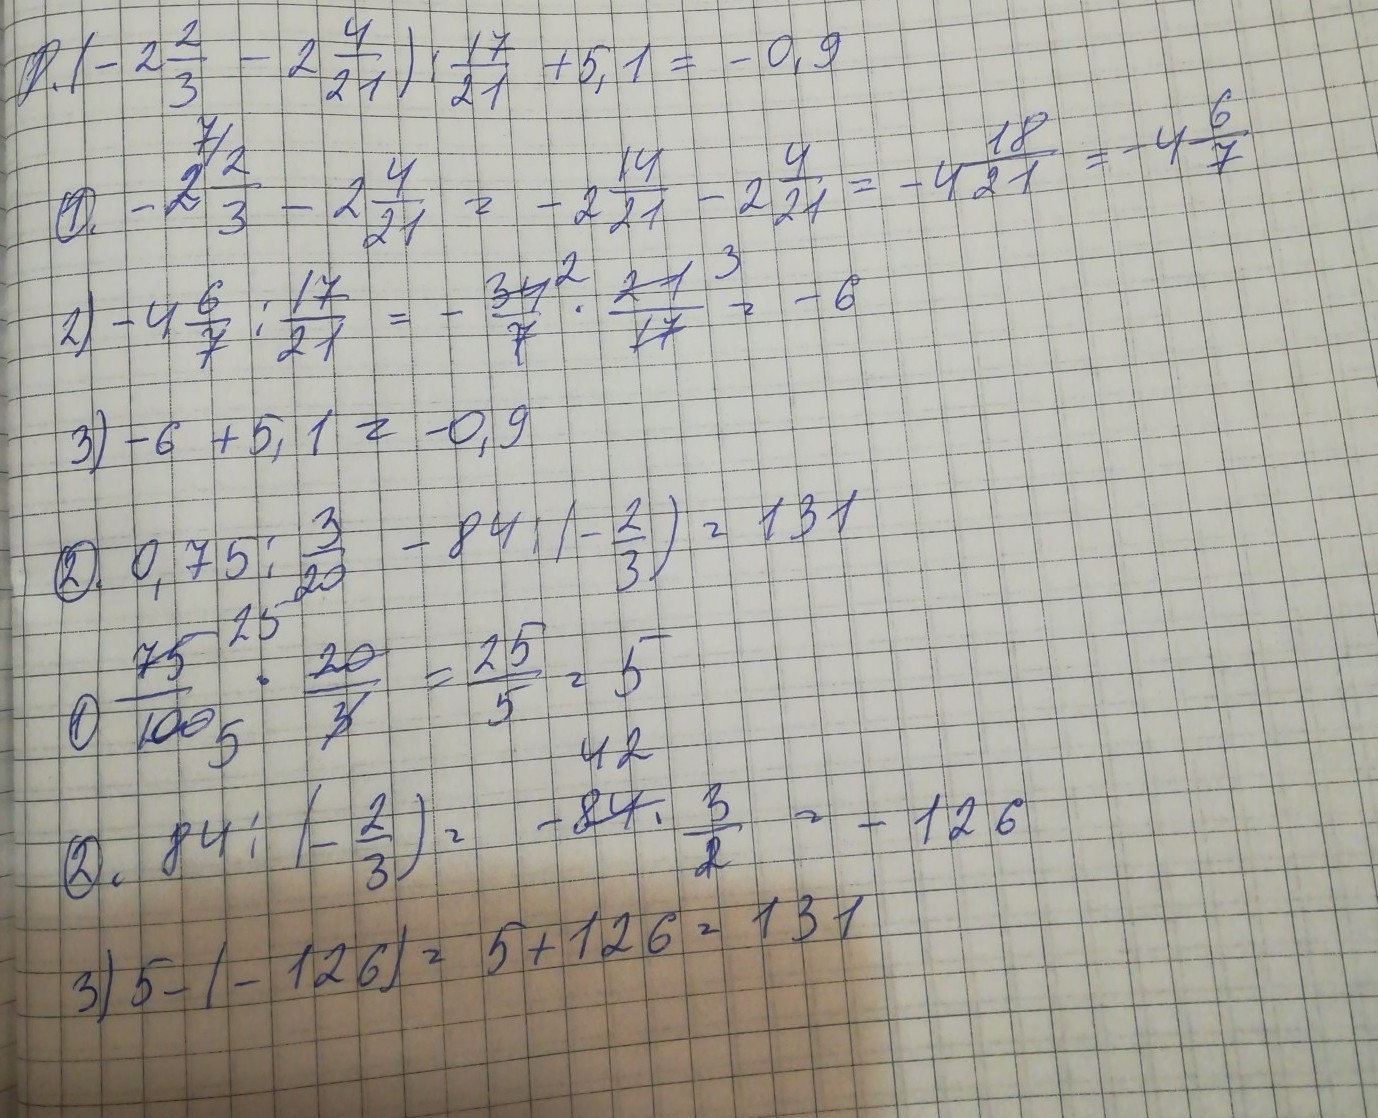 1. (-2 2/3 - 2 4/21) : 17/21 + 5,1 = -0,9
1. -2 2/3 7/ - 2 4/21 = -2 14/21 - 2 4/21 = -4 18/21 = -4 6/7
2) -4 6/7 : 17/21 = - 34/7 2 · 21/17 3 = -6
3) -6 + 5,1 = -0,9
2. 0,75 : 3/20 - 84 : (-2/3) = 131
1 75/100 25 5 · 20/3 = 25/5 = 5
2. 84 : (-2/3) = -84 42 · 3/2 = -126
3) 5 - (-126) = 5 + 126 = 131